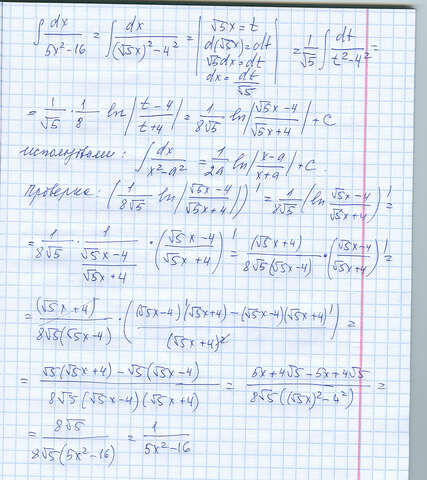 ∫ dx/(5x²-16) = ∫ dx/((√5x)²-4²) = | √5x = t; d(√5x) = dt; √5dx = dt; dx = dt/√5 | = 1/√5 ∫ dt/(t²-4²) =
= 1/√5 · 1/8 ln|(t-4)/(t+4)| = 1/(8√5) ln|(√5x-4)/(√5x+4)| + C
использовали: ∫ dx/(x²-a²) = 1/(2a) ln|(x-a)/(x+a)| + C.
Проверка: (1/(8√5) ln|(√5x-4)/(√5x+4)|)' = 1/(8√5) (ln (√5x-4)/(√5x+4))' =
= 1/(8√5) · 1/((√5x-4)/(√5x+4)) · ((√5x-4)/(√5x+4))' = (√5x+4)/(8√5(√5x-4)) · ((√5x-4)/(√5x+4))' =
= (√5x+4)/(8√5(√5x-4)) · (((√5x-4)'(√5x+4)-(√5x-4)(√5x+4)')/(√5x+4)²) =
= (√5(√5x+4)-√5(√5x-4))/(8√5(√5x-4)(√5x+4)) = (5x+4√5-5x+4√5)/(8√5((√5x)²-4²)) =
= 8√5/(8√5(5x²-16)) = 1/(5x²-16)